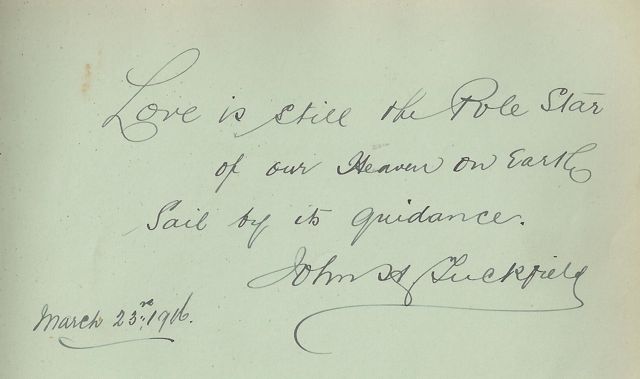 Love is still the Pole Star
of our Heaven on Earth
Sail by its guidance.
John A Tuckfield
March 23rd, 1916.